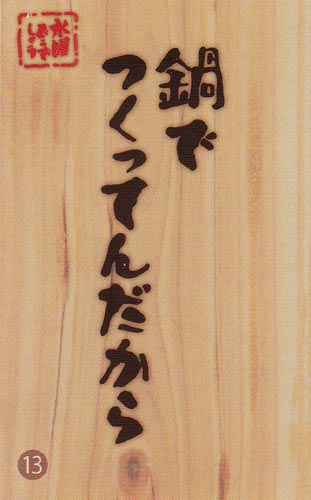 水曜
どうで
しょう
鍋で
つくってんだから
13